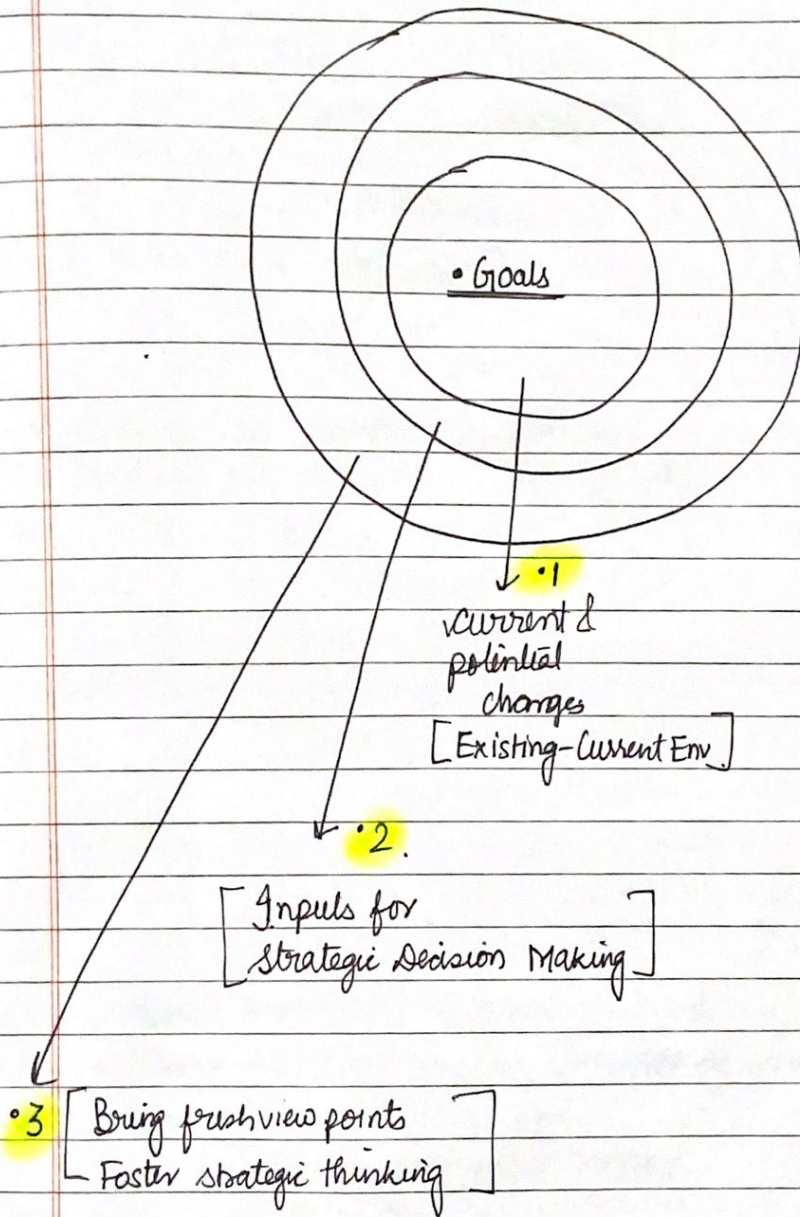 • Goals
•1
current &
potential
changes
[Existing-Current Env.]
•2.
Inputs for
Strategic Decision Making
•3
Bring fresh view points
Foster strategic thinking